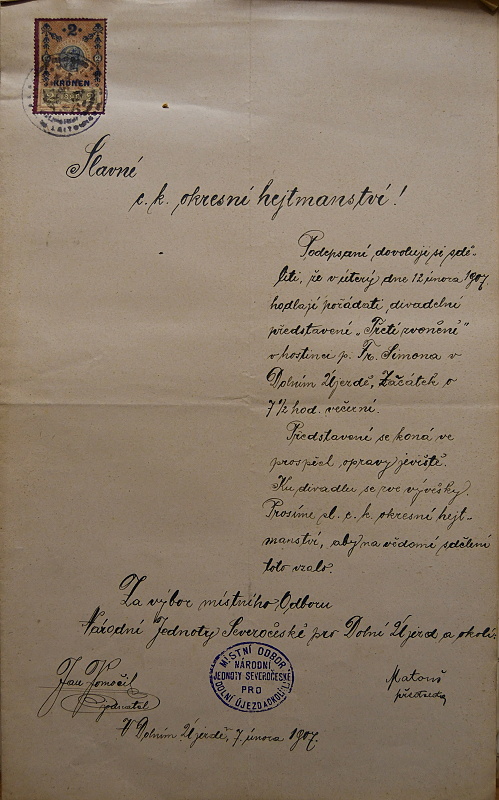 2
KRONEN
Slavné
c. k. okresní hejtmanství!
Podepsaní dovolují si sdě-
liti, že v úterý dne 12 února 1907.
hodlají pořádati divadelní
představení „Třetí zvonění"
v hostinci p. Fr. Šimona v
Dolním Újezdě, Začátek o
7½ hod. večerní.
Představení se koná ve
prospěch opravy jeviště.
Ku divadlu se zve vývěsky.
Prosíme sl. c. k. okresní hejt-
manství, aby na vědomí sdělení
toto vzalo.
Za výbor místního Odboru
Národní Jednoty Severočeské pro Dolní Újezd a okolí:
MÍSTNÍ ODBOR
NÁRODNÍ
JEDNOTY SEVEROČESKÉ
PRO
DOLNÍ ÚJEZD A OKOLÍ
Jan
jednatel
Matouš
předseda
V Dolním Újezdě, 7. února 1907.